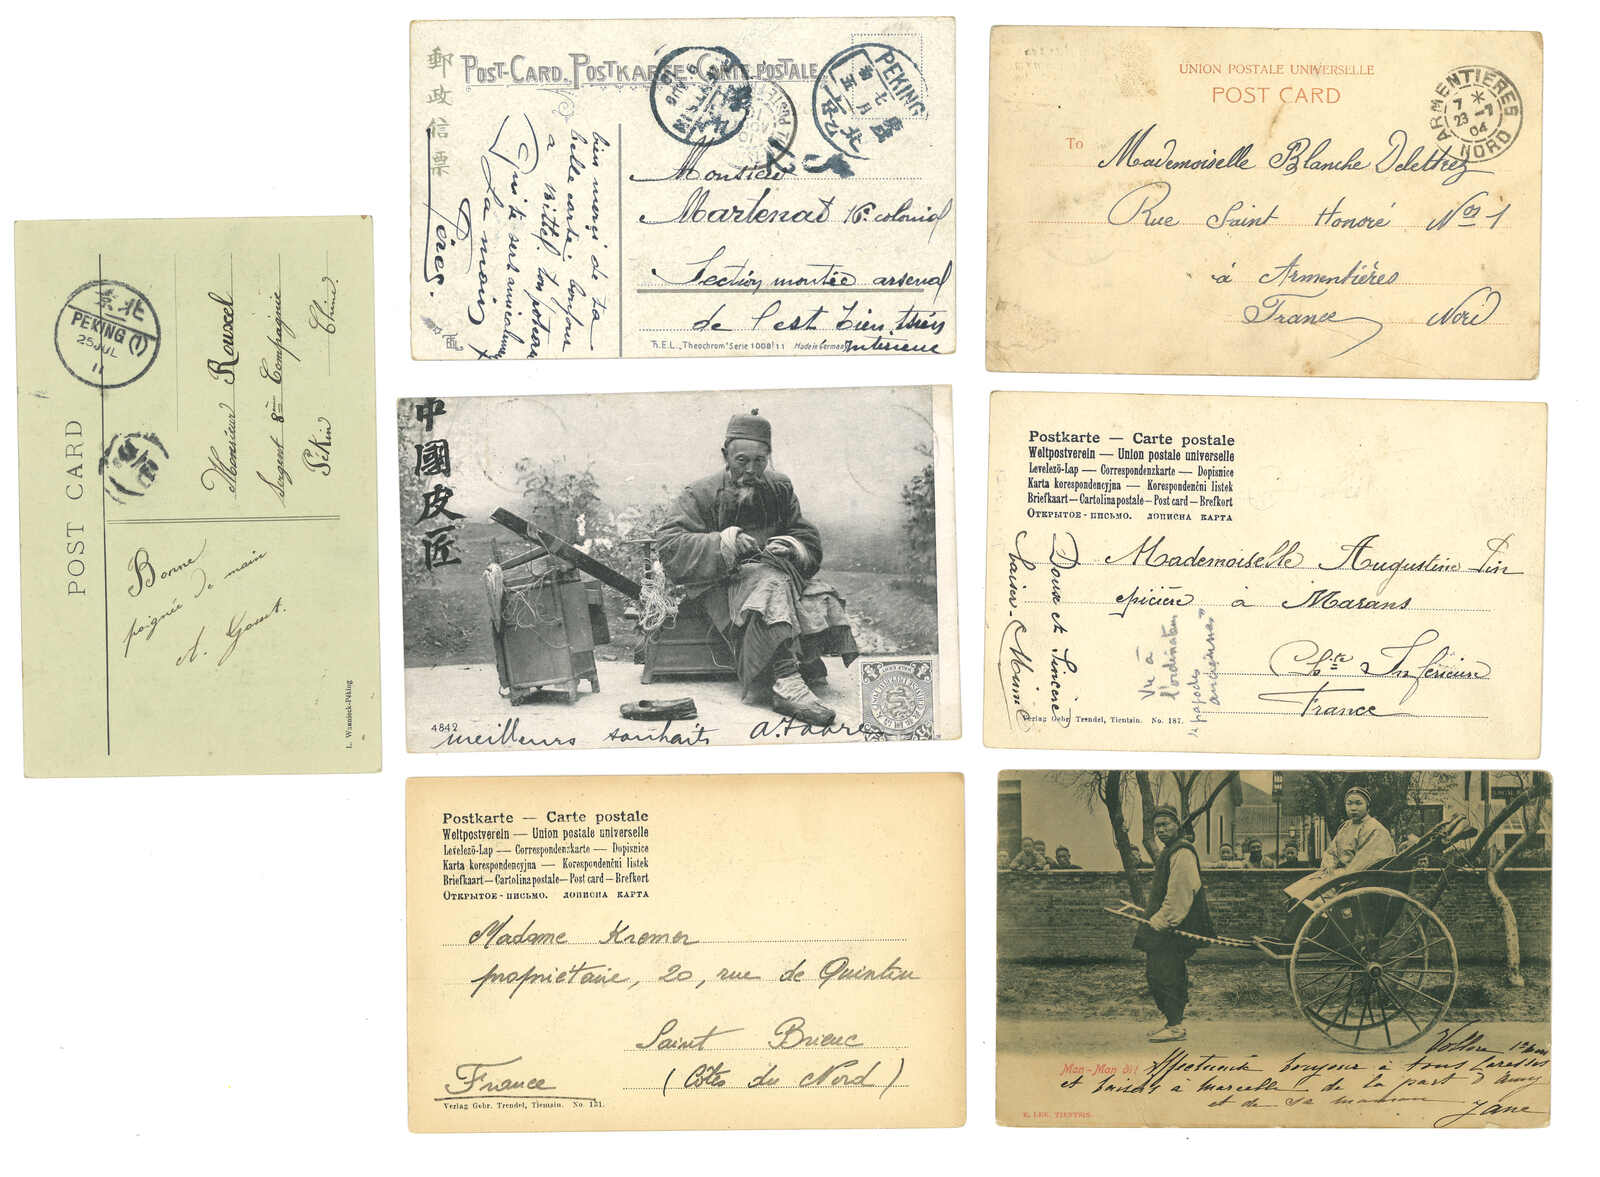 POST CARD
北京
PEKING (1)
25 JUL
11
Monsieur Rouxel
Sergent 8me Compagnie
Pékin Chine.
Bonne
poignée de main
L. Wannieck-Péking
郵政信票
POST-CARD. POSTKARTE. CARTE POSTALE
PEKING
北
七月
9 AUG
bien merci de ta
belle carte, bonjour
a
Qui te sert amicalement
La main
Monsieur
Martenat 16e colonial
Section montée arsenal
de l'est Tien tsin
T.E.L. „Theochrom" Serie 1008/11 Made in Germany
UNION POSTALE UNIVERSELLE
POST CARD
ARMENTIERES
7 * 
23 -7
04
NORD
To
Mademoiselle Blanche Delettrez
Rue Saint Honoré Nos 1
à Armentières
France Nord
中國皮匠
4842
meilleurs souhaits A. Fabre
Postkarte — Carte postale
Weltpostverein — Union postale universelle
Levelezö-Lap — Correspondenzkarte — Dopisnice
Karta korespondencyjna — Korespondenčni listek
Briefkaart — Cartolina postale — Post card — Brefkort
ОТКРЫТОЕ - ПИСЬМО. ДОПИСНА КАРТА
Mademoiselle Augustine Pin
épicière à Marans
Cte Inférieure
France
Doux et Sincère
Vu à
l'ordinateur
Verlag Gebr. Trendel, Tientsin. No. 187.
Postkarte — Carte postale
Weltpostverein — Union postale universelle
Levelezö-Lap — Correspondenzkarte — Dopisnice
Karta korespondencyjna — Korespondenčni listek
Briefkaart — Cartolina postale — Post card — Brefkort
ОТКРЫТОЕ - ПИСЬМО. ДОПИСНА КАРТА
Madame Kremer
propriétaire, 20, rue de Quintin
Saint Brieuc
France (Côtes du Nord)
Verlag Gebr. Trendel, Tientsin. No. 131.
Man-Man di!
Affectueux bonjour à tous Caresses
et baisers à Marcelle de la part d'Amy
et de sa maman
Jane
E. LEE, TIENTSIN.